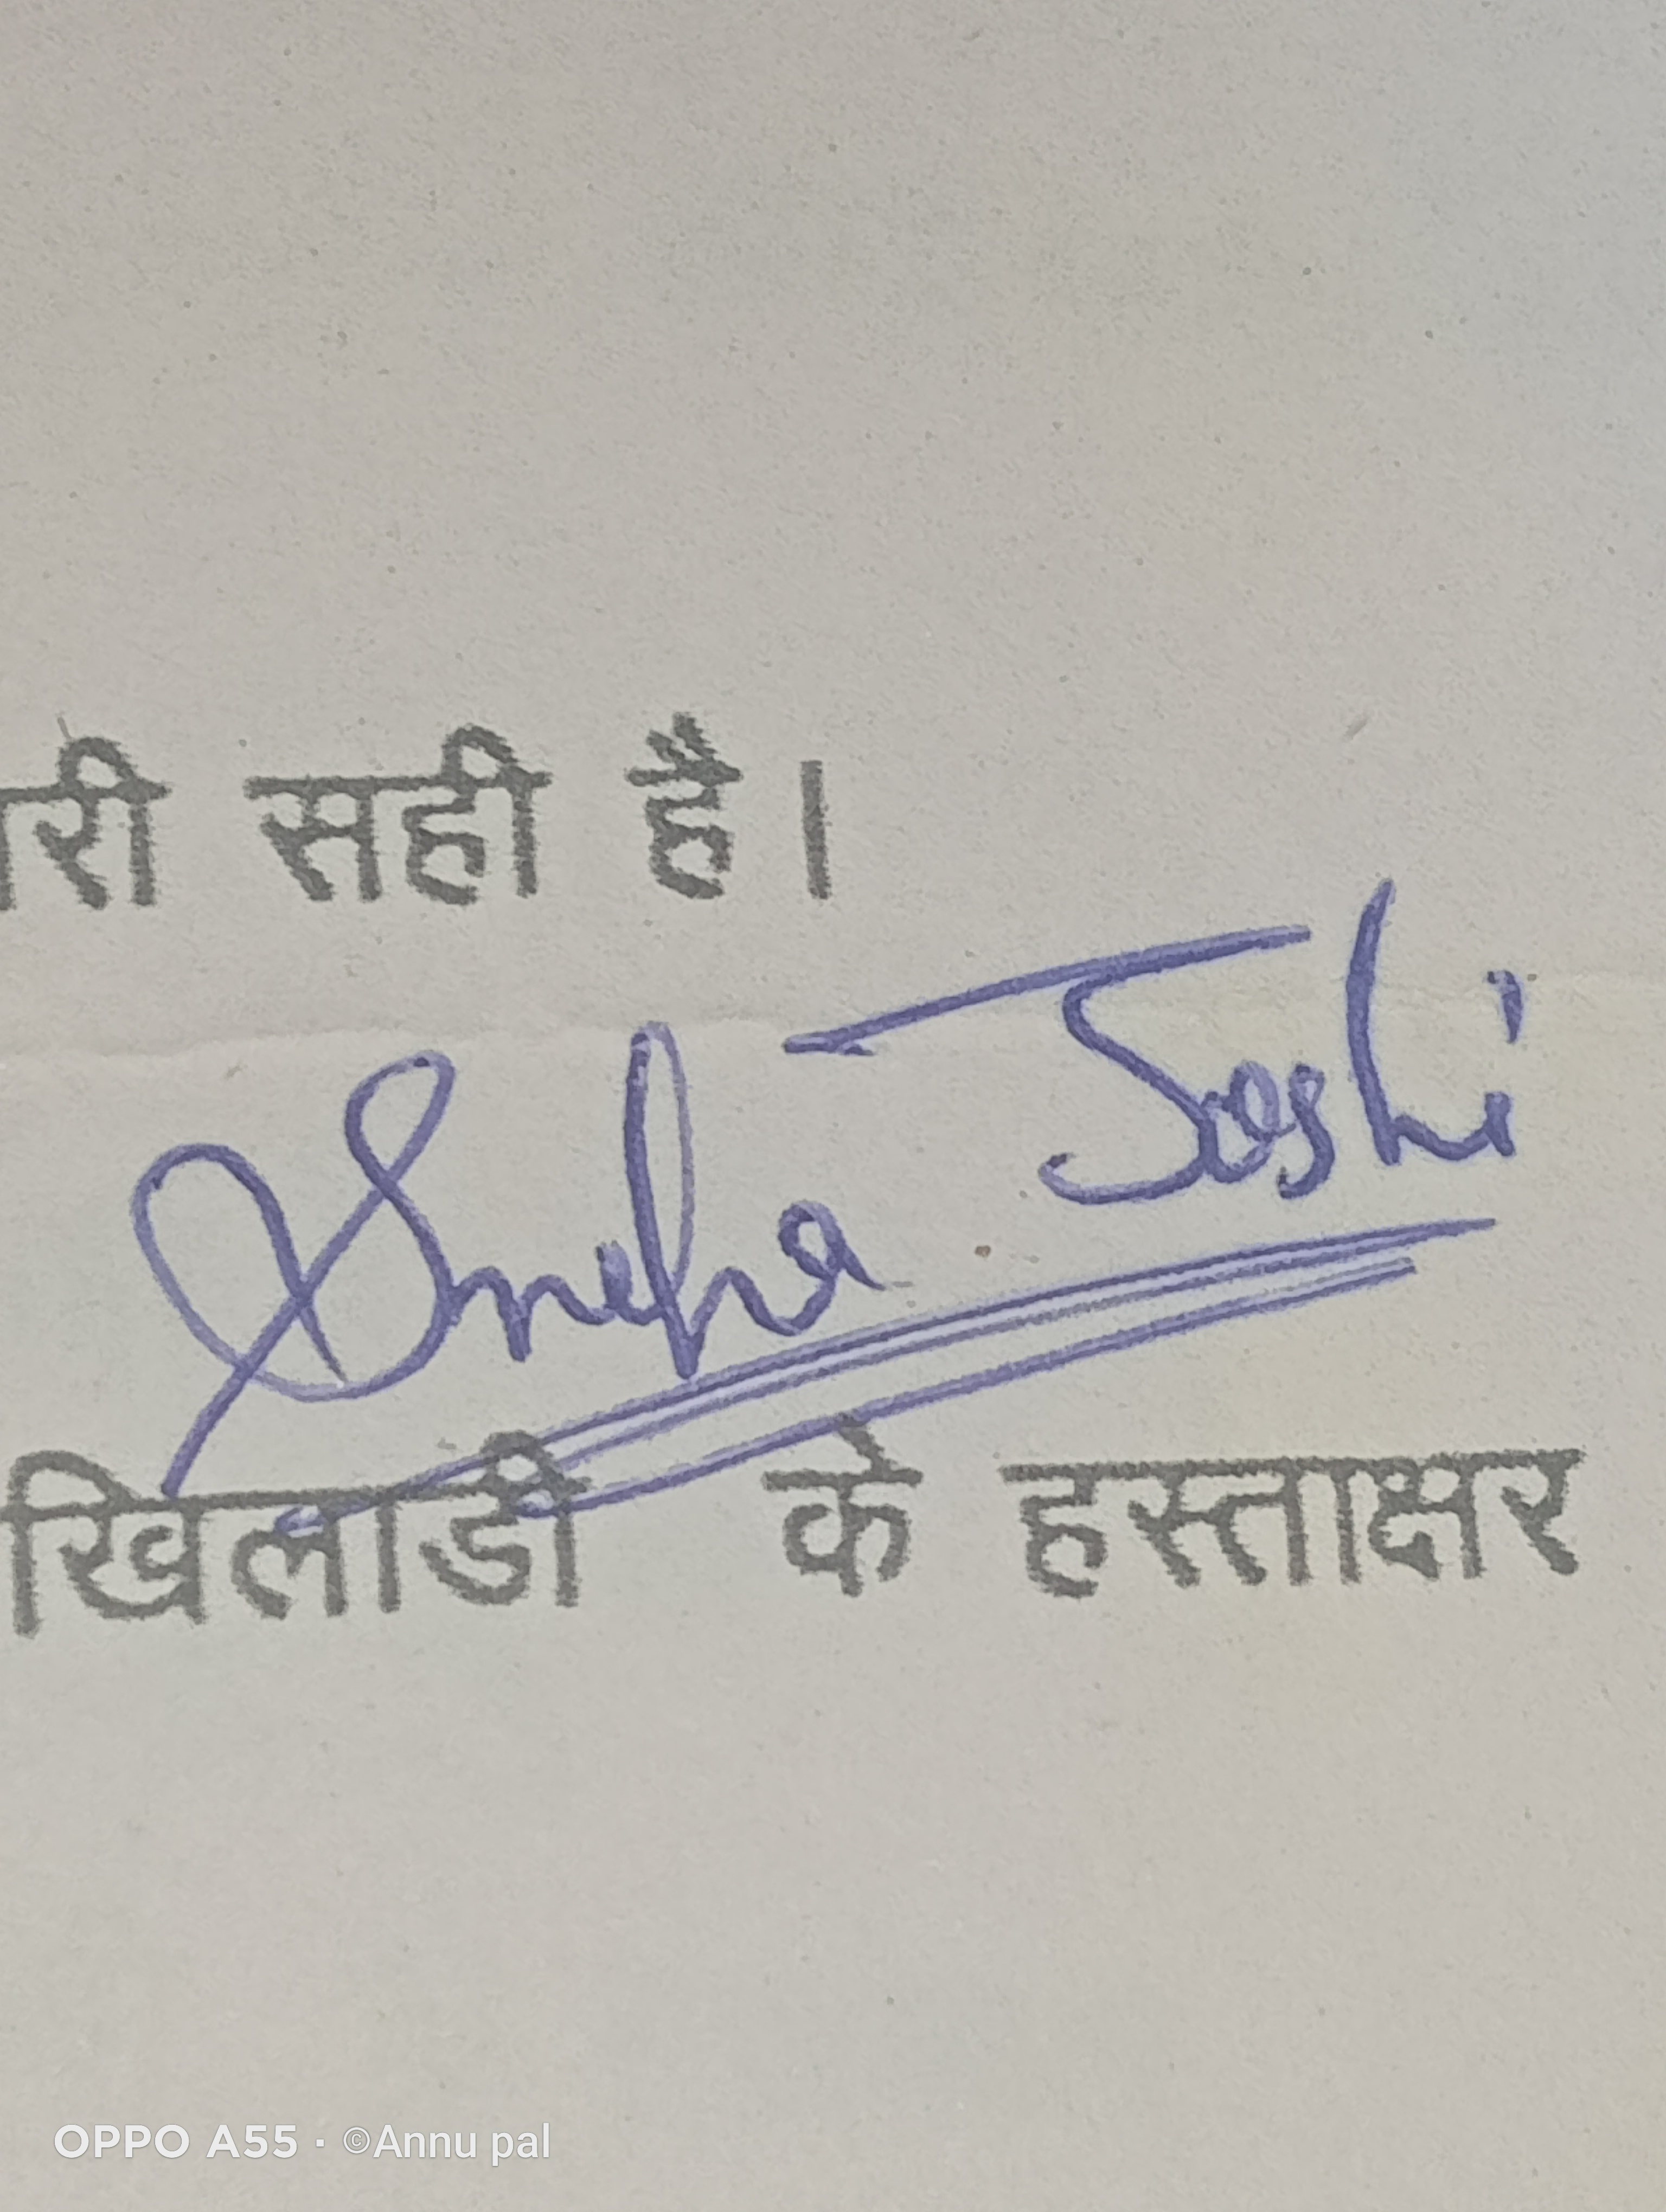 री सही है।
Sneha Joshi
खिलाडी के हस्ताक्षर
OPPO A55 · ©Annu pal